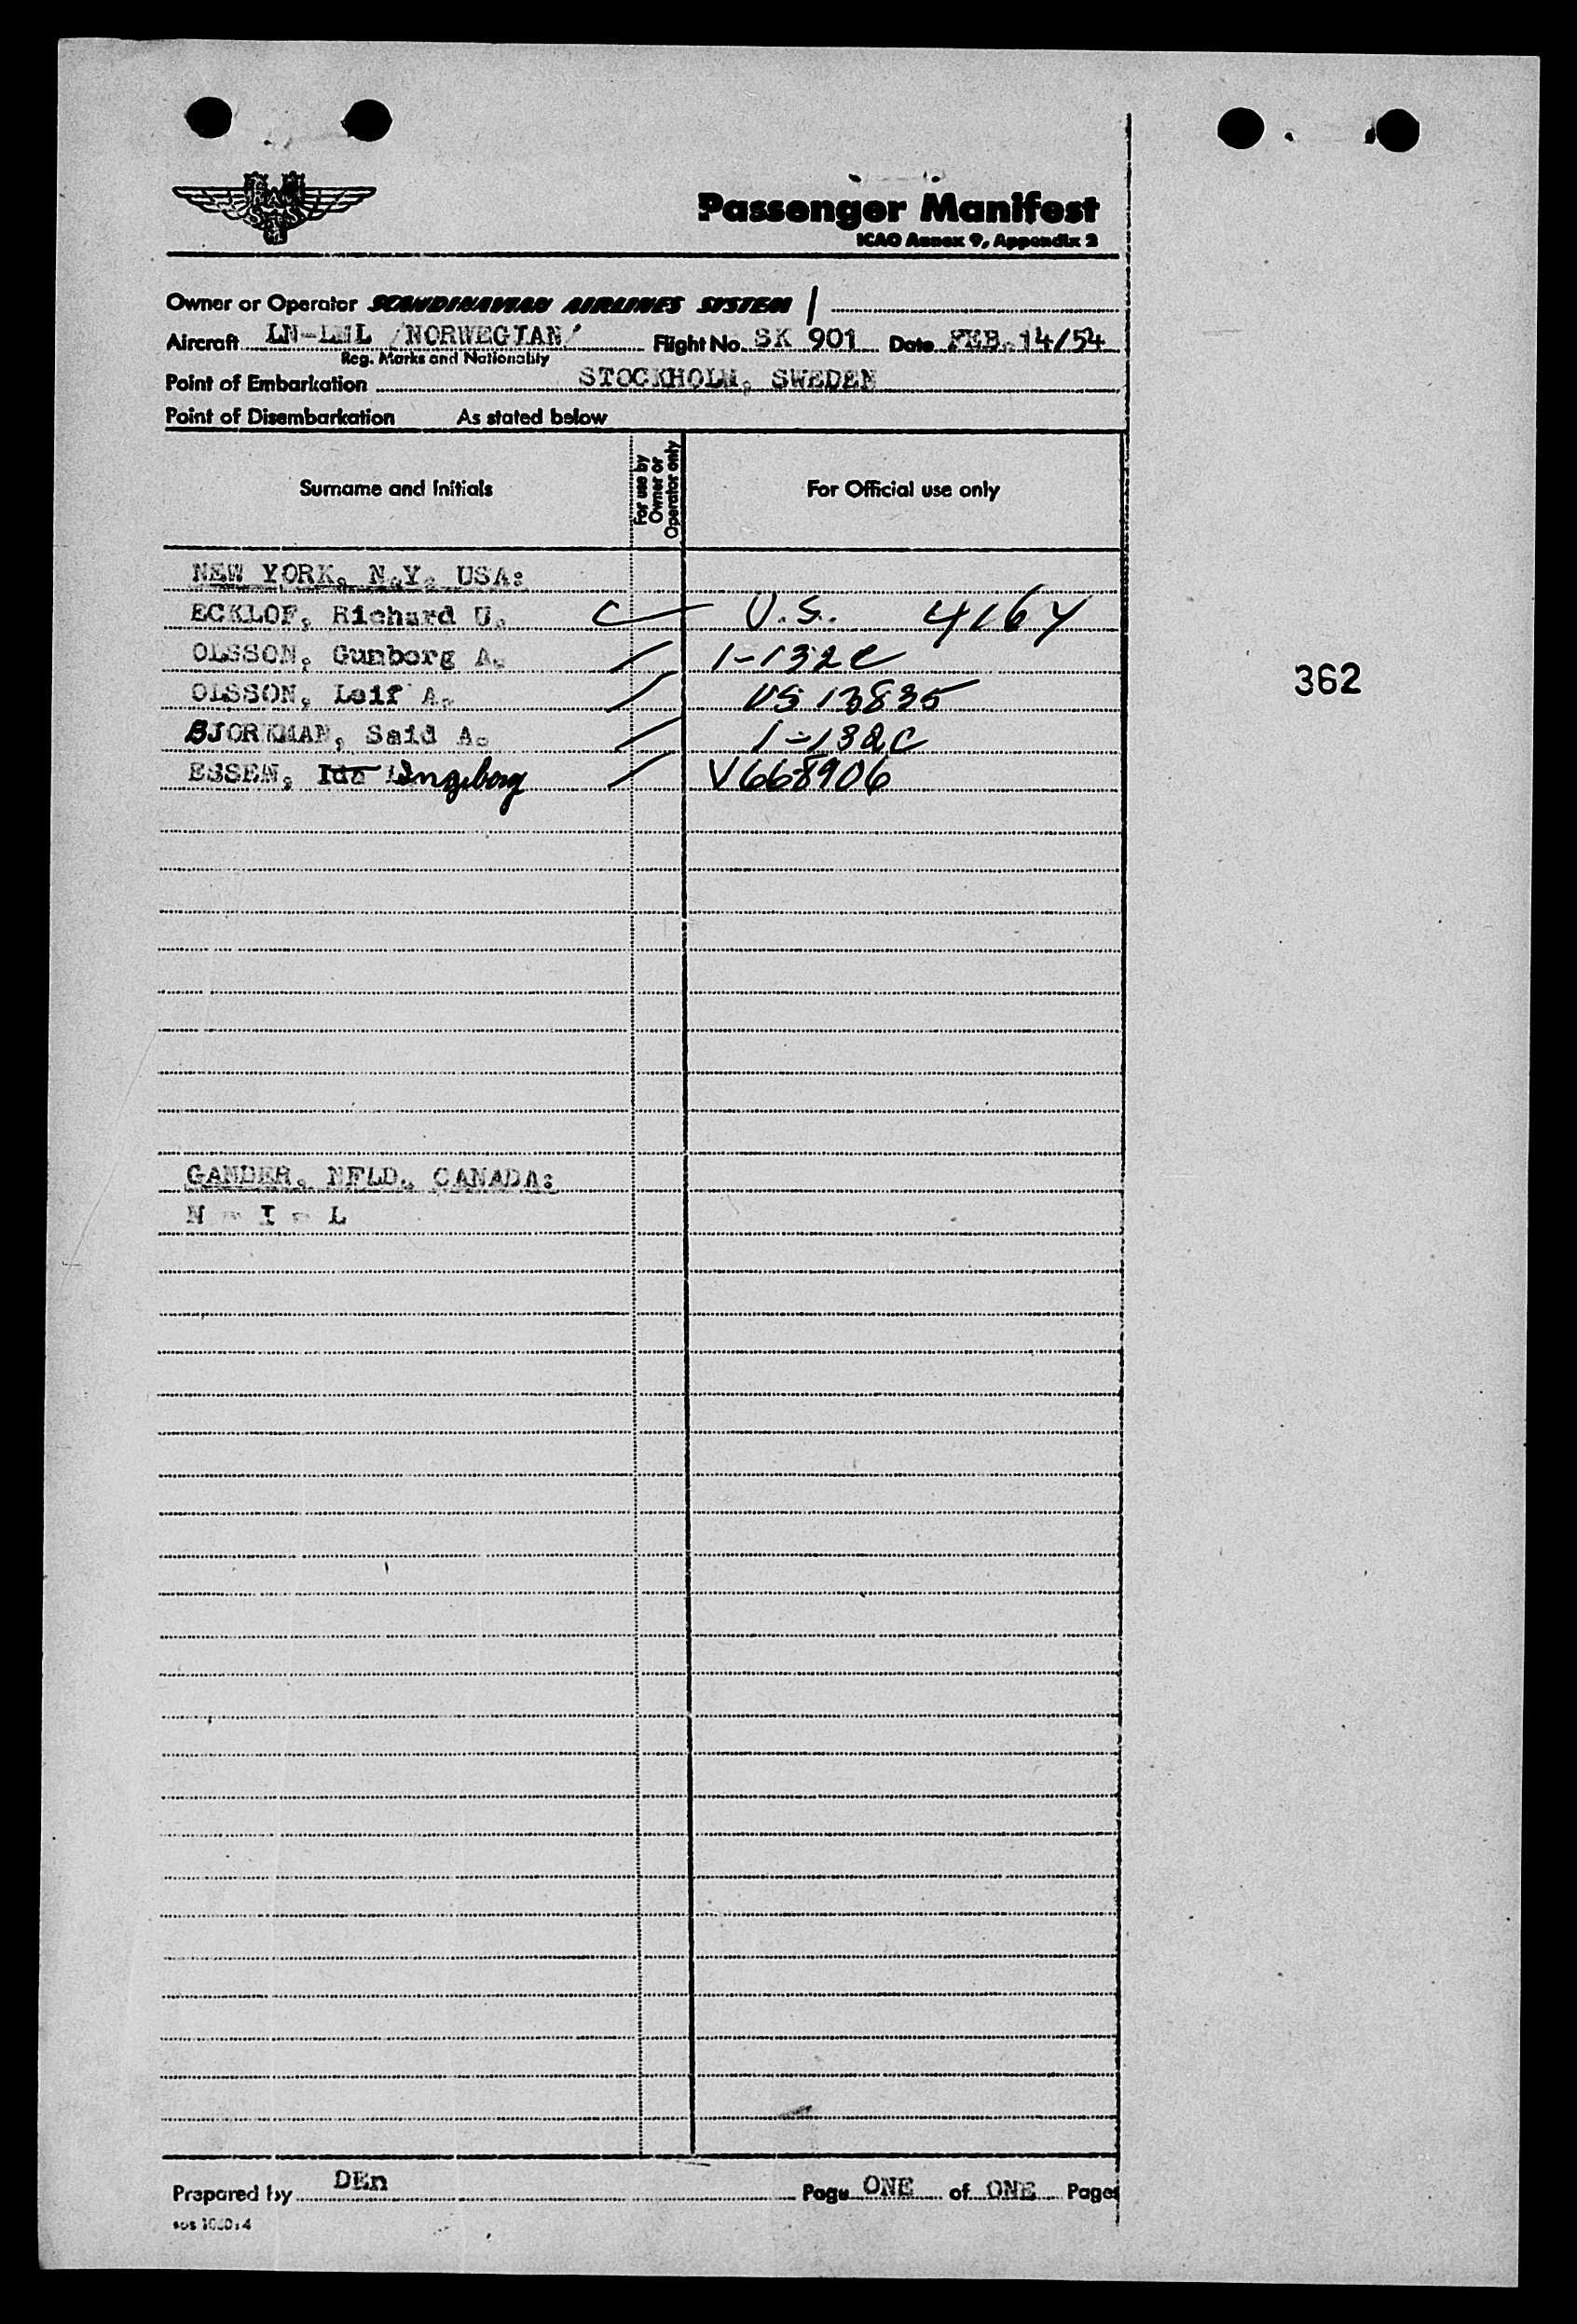 Passenger Manifest
ICAO Annex 9, Appendix 2
Owner or Operator SCANDINAVIAN AIRLINES SYSTEM /
Aircraft LN-LML /NORWEGIAN/ Flight No. SK 901 Date FEB. 14/54
Reg. Marks and Nationality
Point of Embarkation STOCKHOLM, SWEDEN
Point of Disembarkation As stated below
Surname and Initials For use by Owner or Operator only For Official use only
NEW YORK, N.Y. USA:
ECKLOF, Richard U. U.S. 4164
OLSSON, Gunborg A. 1-132C
OLSSON, Leif A. US 13835
362
BJORKMAN, Said A. 1-132C
ESSEN, Ida Ingeborg V668906
GANDER, NFLD, CANADA:
N - I - L
Prepared by DEn Page ONE of ONE Pages